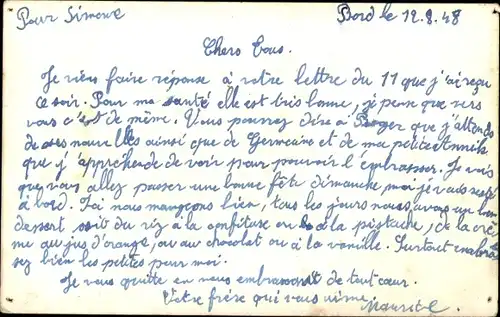 Pour Simone
Bord le 12.8.48
Chers Tous.
Je viens faire réponse à votre lettre du 11 que j'ai reçu
ce soir. Pour ma santé elle est très bonne, j'pense que vers
vous c'est de même. Vous pourrez dire à Roger que j'attends
de ses nouvelles ainsi que de Germaine et de ma petite Annick
que j'apprehende de voir pour pouvoir l'embrasser. Je vois
que vous allez passer une bonne fête dimanche moi je vais rester
à bord. Ici nous mangeons bien, tous les jours nous avons un bon
dessert soit du riz à la confiture ou à la pistache, de la crè-
me au jus d'orange, ou au chocolat ou à la vanille. Surtout embras-
sez bien les petites pour moi.
Je vous quitte en vous embrassant de tout cœur.
Votre frère qui vous aime.